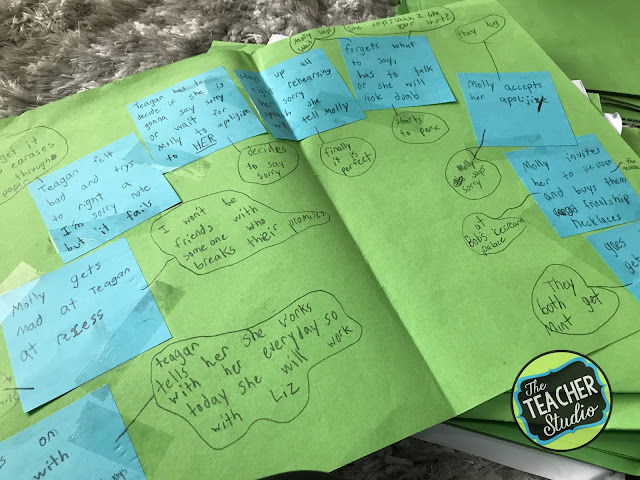 get it
eareases
through
paper
Teagan has to
decide if she is
gonna say sorry
or wait for
Molly to apoligize
to HER
decides
to say
sorry
up all
night rehearsing
her sorry
speach she
tell Molly
finally
it is
perfect
Molly says
wait
she simps
I like
your shirt?
forgets what
to say,
has to talk
or she will
look dumb
starts
to panic
they hug
Molly accepts
her apolijize
Molly
says
sorry
Molly invites
her to
and buys them
freindship
necklaces
at
Bob's icecream
palace
goes
get
They
both get
Mint
Teagan felt
bad and trys
to right a
I'm sorry note
but it fails
I won't be
friends with
someone who
breaks their promises
Molly gets
mad at Teagan
at recess
teagan
tells her she works
with her everyday so
today she will work
with Liz
on
with
The
TEACHER
Studio